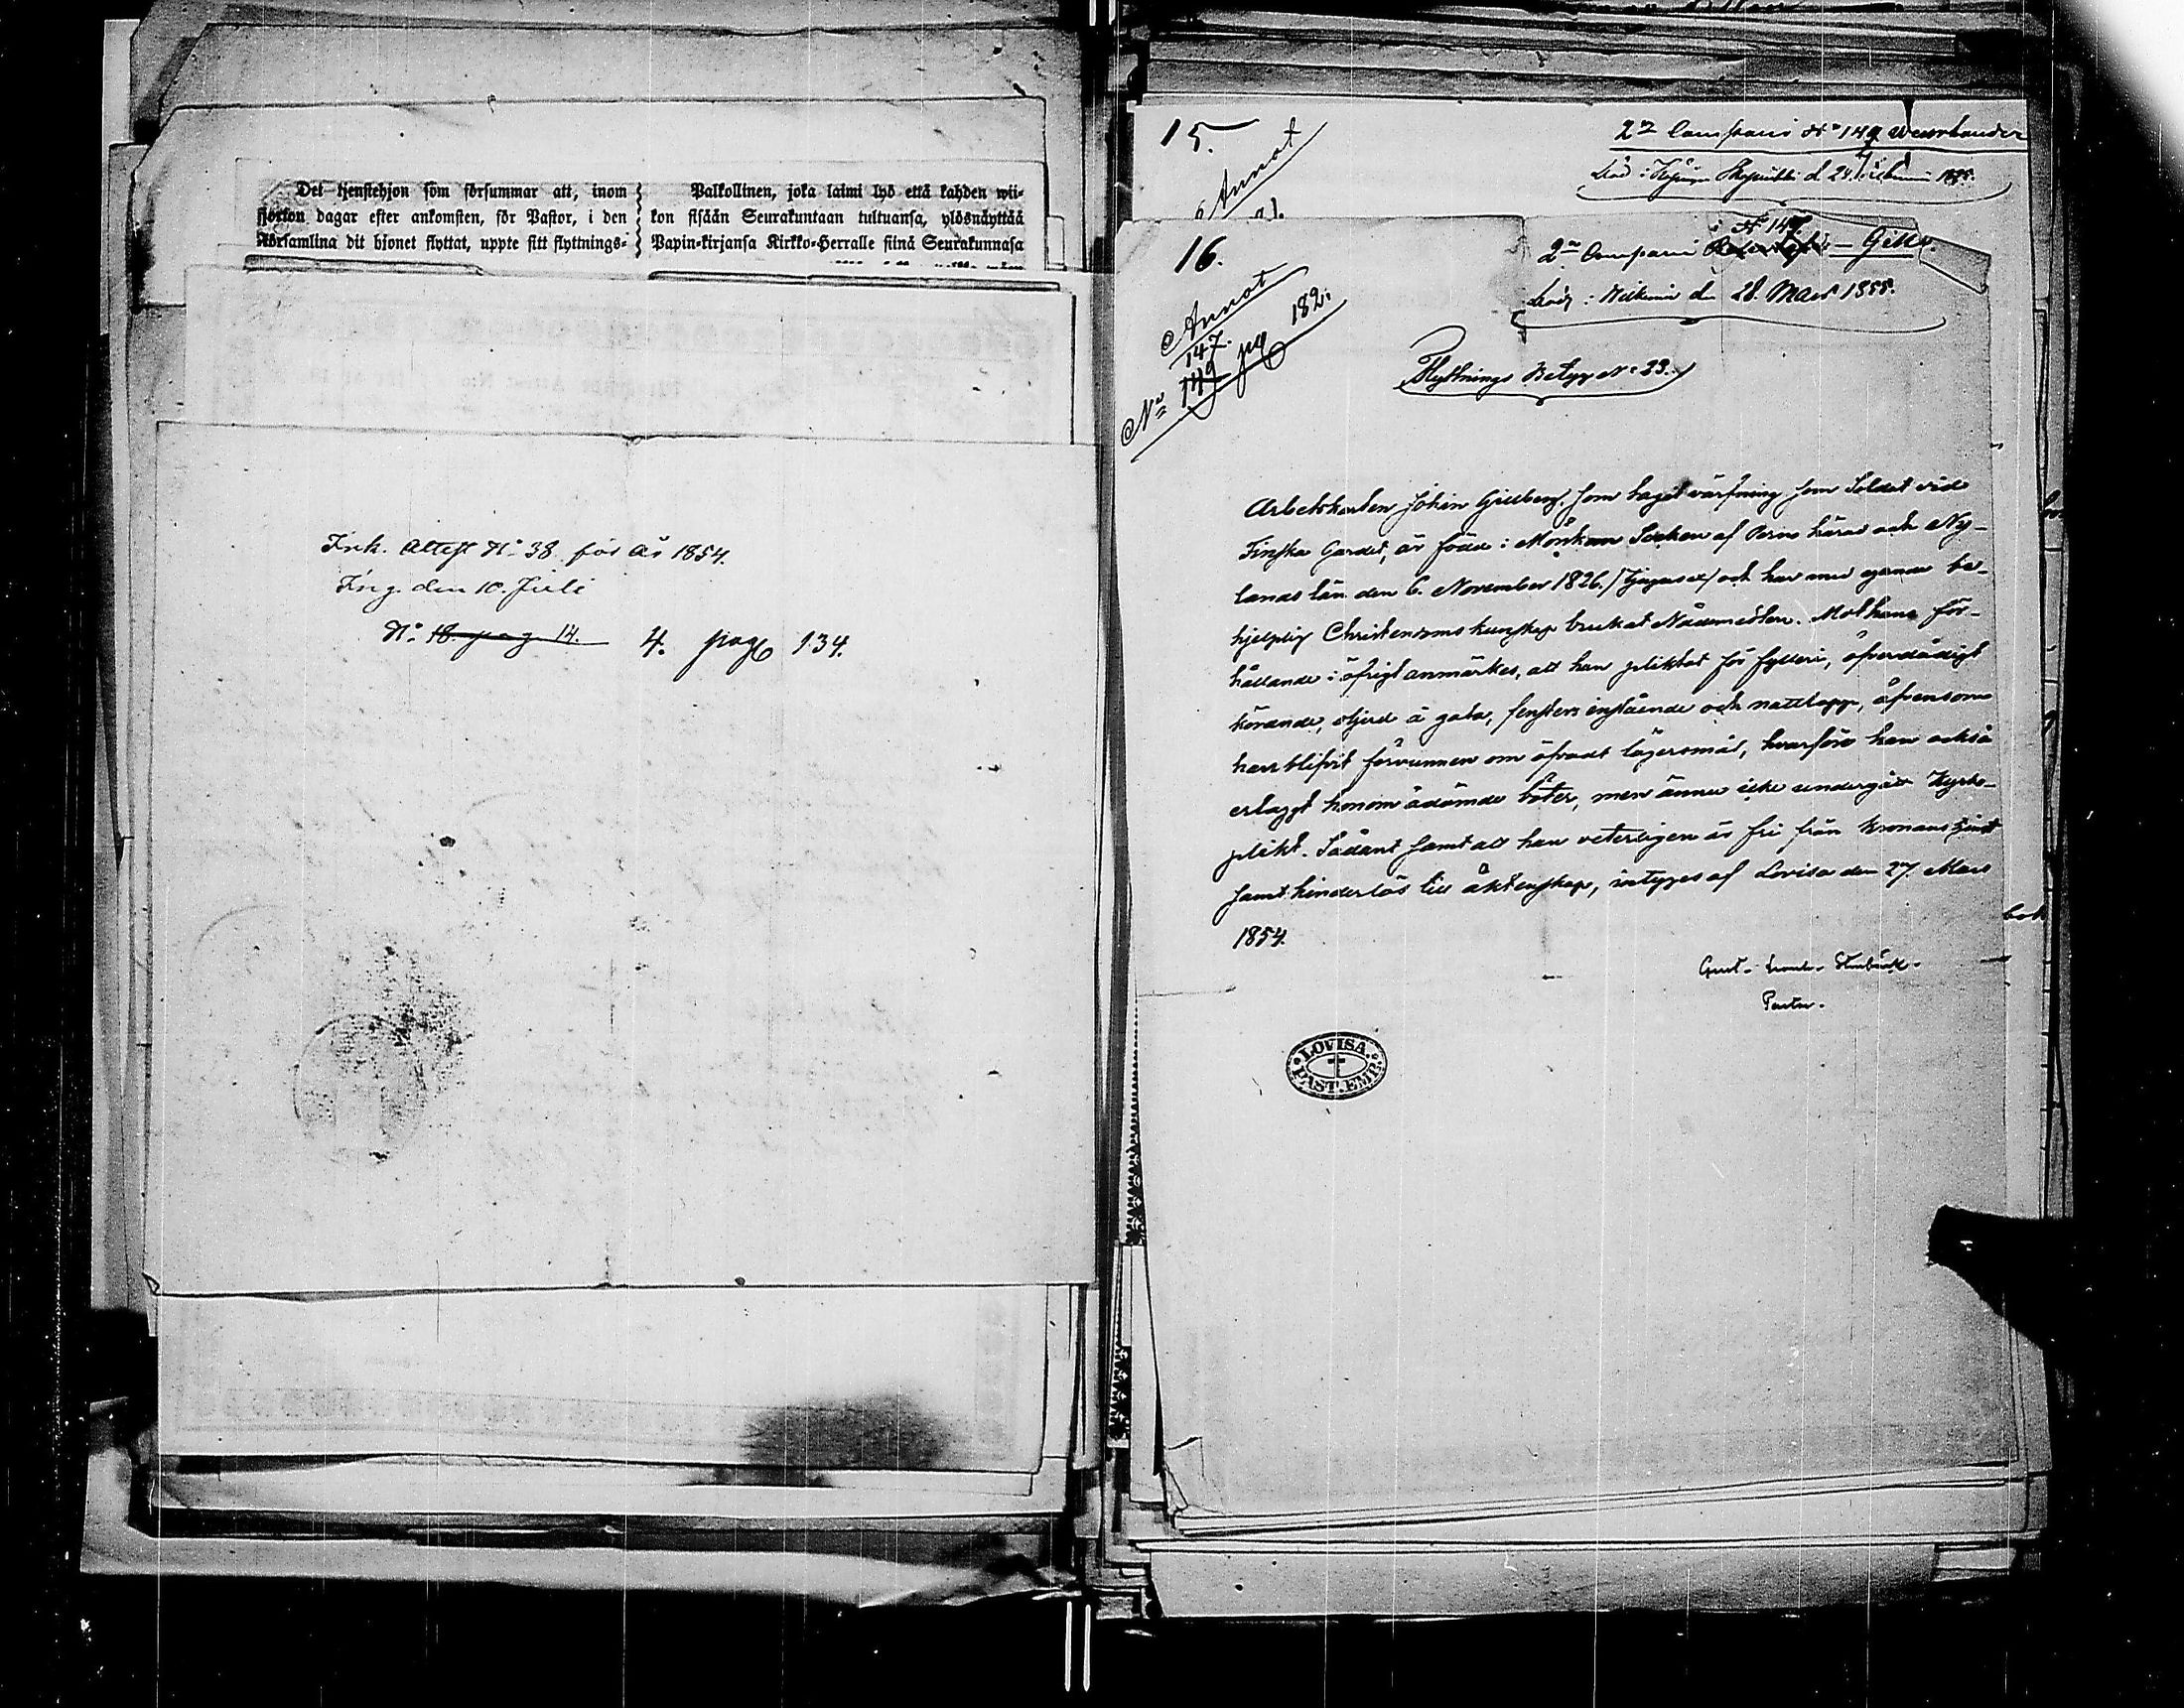 Det tjenstehjon som försummar att, inom
fjorton dagar efter ankomsten, för Pastor, i den
församling dit hjonet flyttat, uppte sitt flyttnings-
Palkollinen, joka laimi lyö että kahden wii-
kon sisään Seurakuntaan tultuansa, ylösnäyttää
Papin-kirjansa Kirkko-Herralle siinä Seurakunnasa
Ink. Attest No 38 för År 1854.
Ing. den 10. Juli
No 18 pag 14. 4. pag 134.
15.
Annot
2n Compani No 149
Död i d 24 1855.
16.
Annot
147.
No 149 pag 182.
No 147
2n Compani Gill
Död i d 28. Mars 1855.
Flyttnings Betyg No 23.
Arbetskarlen Johan Gillberg, som tagit värfning som Soldat vid
Finska Gardet, är född i Mörskom Socken af Perno härad och Ny-
lands län den 6. November 1826. och har med egande be-
hjelplig Christendomskunskap brukat Nådemedlen. Mot hans för-
hållande i öfrigt anmärkes, att han pliktat för fylleri, öfverdådigt
körande, oljud å gata, fensters inslående och nattlopp, äfvensom
han blifvit förvunnen om öfvadt lägersmål, hvarföre han också
erlaggt honom ådömde böter, men ännu icke undergått Kyrko-
plikt. Sådant samt att han veterligen är fri från Kronans tjenst
samt hinderlös till äktenskap, intygas af Lovisa den 27 Mars
1854.
Gust. Stenbäck.
Pastor.
LOVISA.
PAST. EMB.